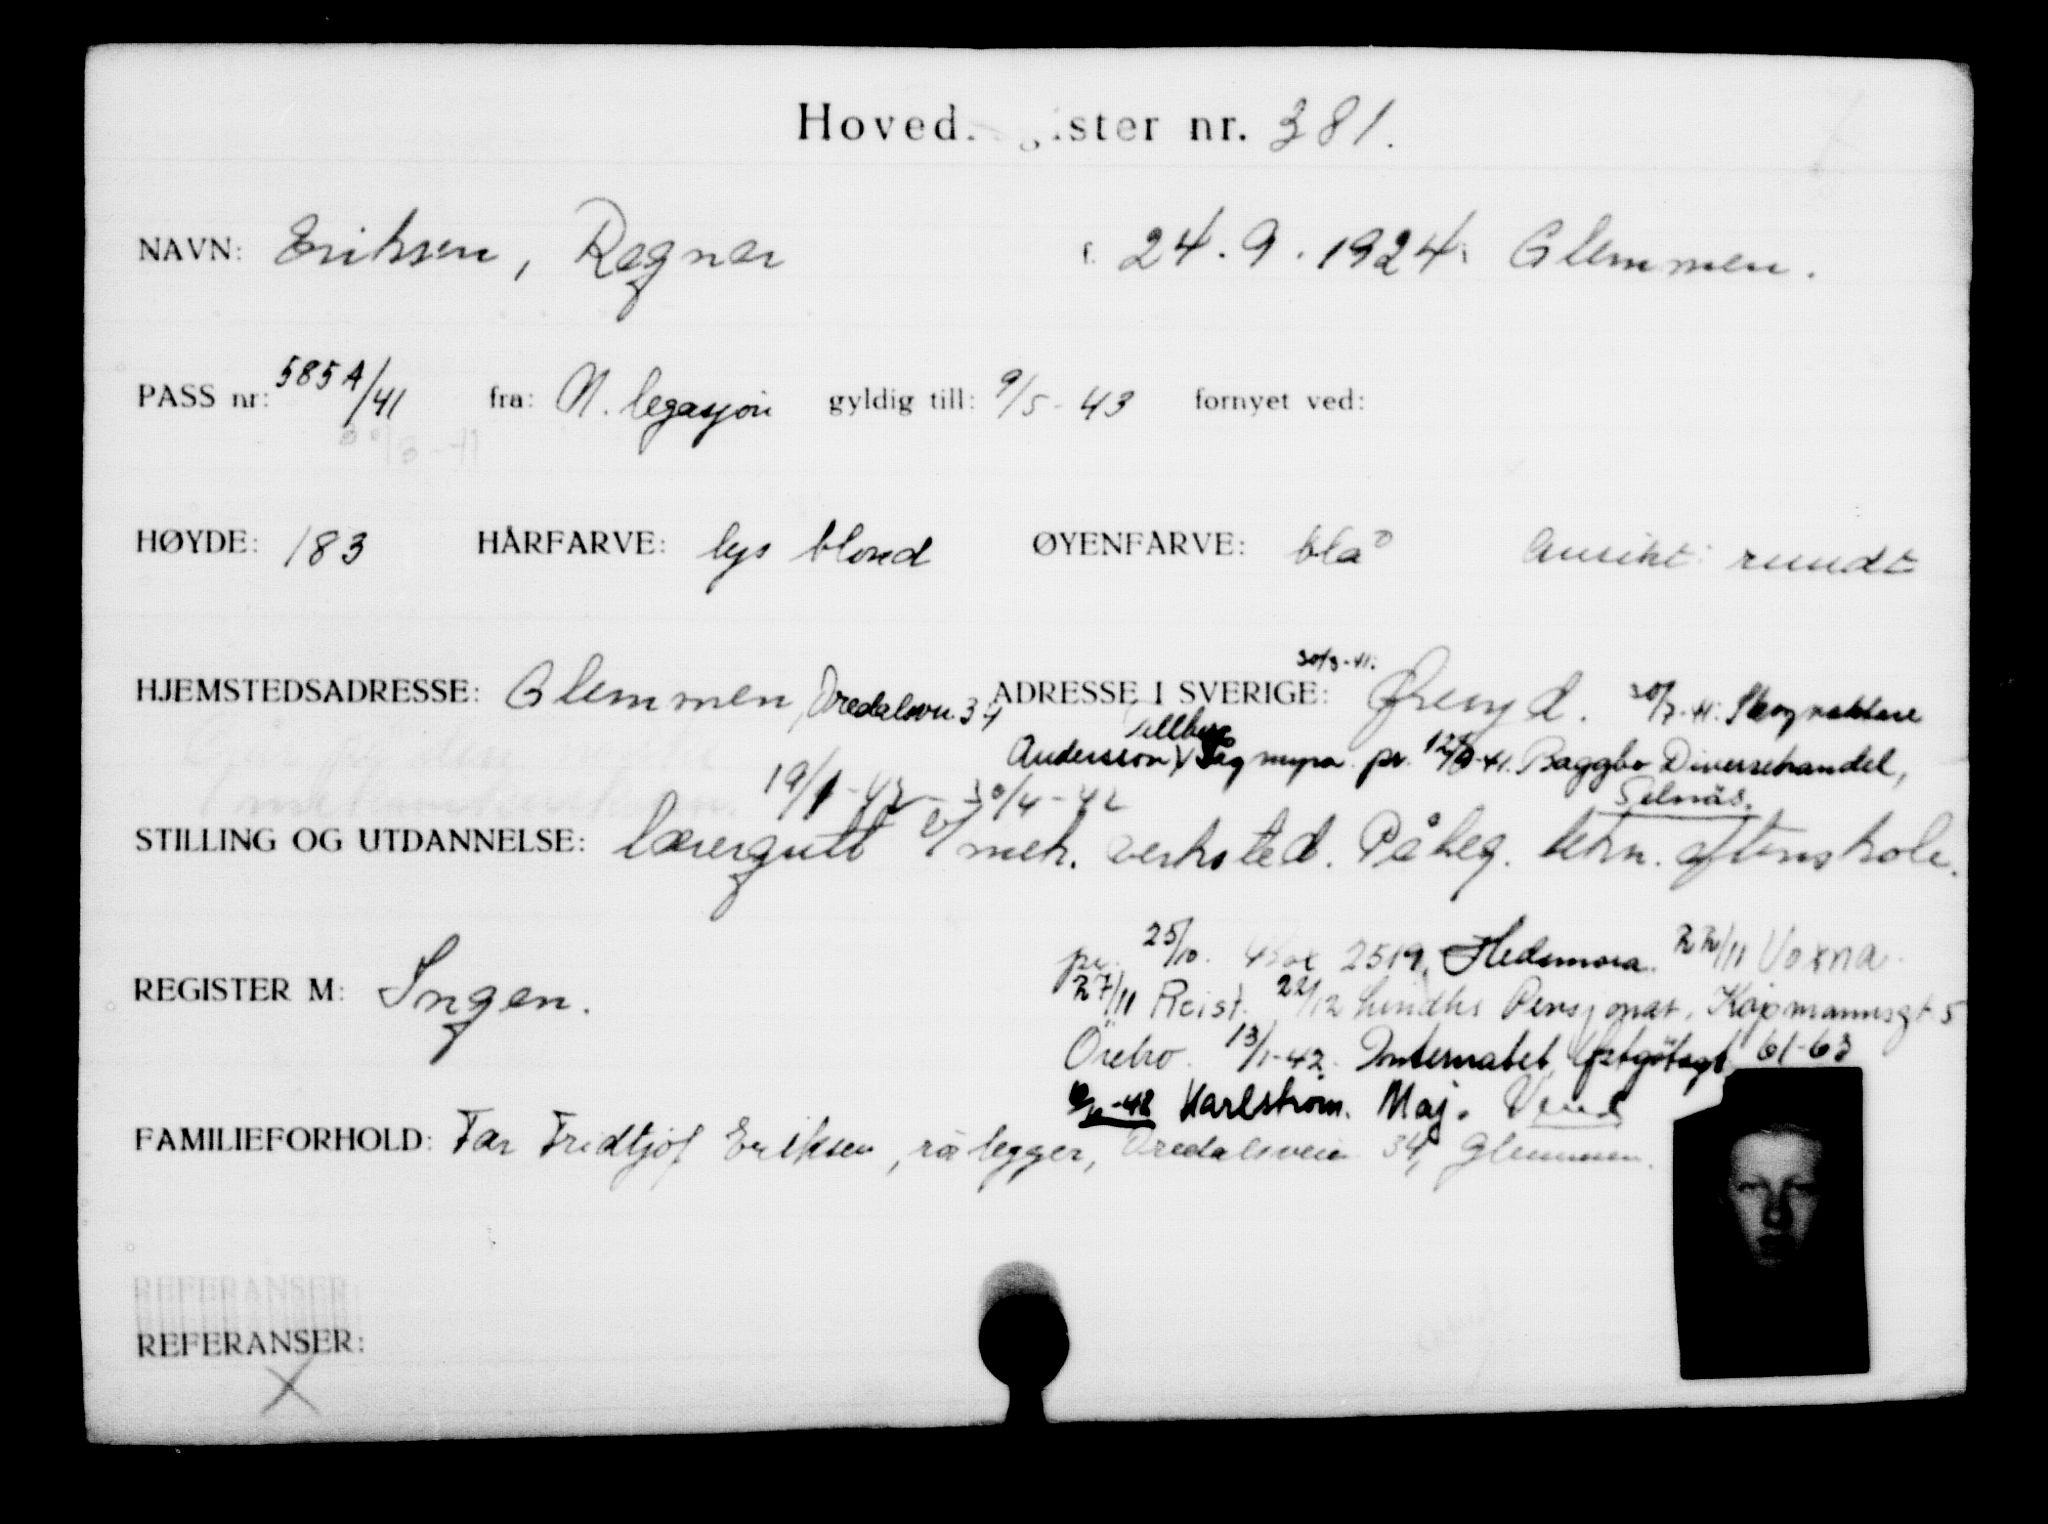 Hoved ister nr. 381.
NAVN: Eriksen, Ragnar f. 24.9.1924 i Glemmen.
PASS nr: 585A/41 fra: N. legasjon gyldig till: 9/5-43 fornyet ved:
HØYDE: 183 HÅRFARVE: lys blond ØYENFARVE: blå Ansikt: rundt
30/3-41:
HJEMSTEDSADRESSE: Glemmen, Oredalsvn. 34 ADRESSE I SVERIGE: Øreryd. 30/7-41: Skogvaktare
Tillberg
Andersson, Dagmyra. pr. 12/9-41. Baggbo Diversehandel,
Selnäs.
19/1-42 - 30/4-42
STILLING OG UTDANNELSE: lærergutt v/mek. verksted. Påbeg. tekn. aftenskole.
pr. 25/10. Box 2519, Hedemora. 22/11 Voxna.
REGISTER M: Ingen.
27/11 Reist. 22/12 Lindhs Pensjonat, Køpmannsgt 5
Örebro. 13/1-42. Internatet, Østgötagt 61-63
-42 Karlstrøm. Maj.
FAMILIEFORHOLD: Far Fridtjof Eriksen, rørlegger, Oredalsveien 34, Glemmen.
REFERANSER:
REFERANSER:
X